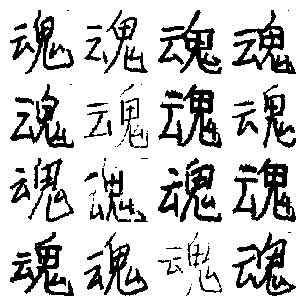 魂魂魂魂
魂魂魂魂
魂魂魂魂
魂魂魂魂